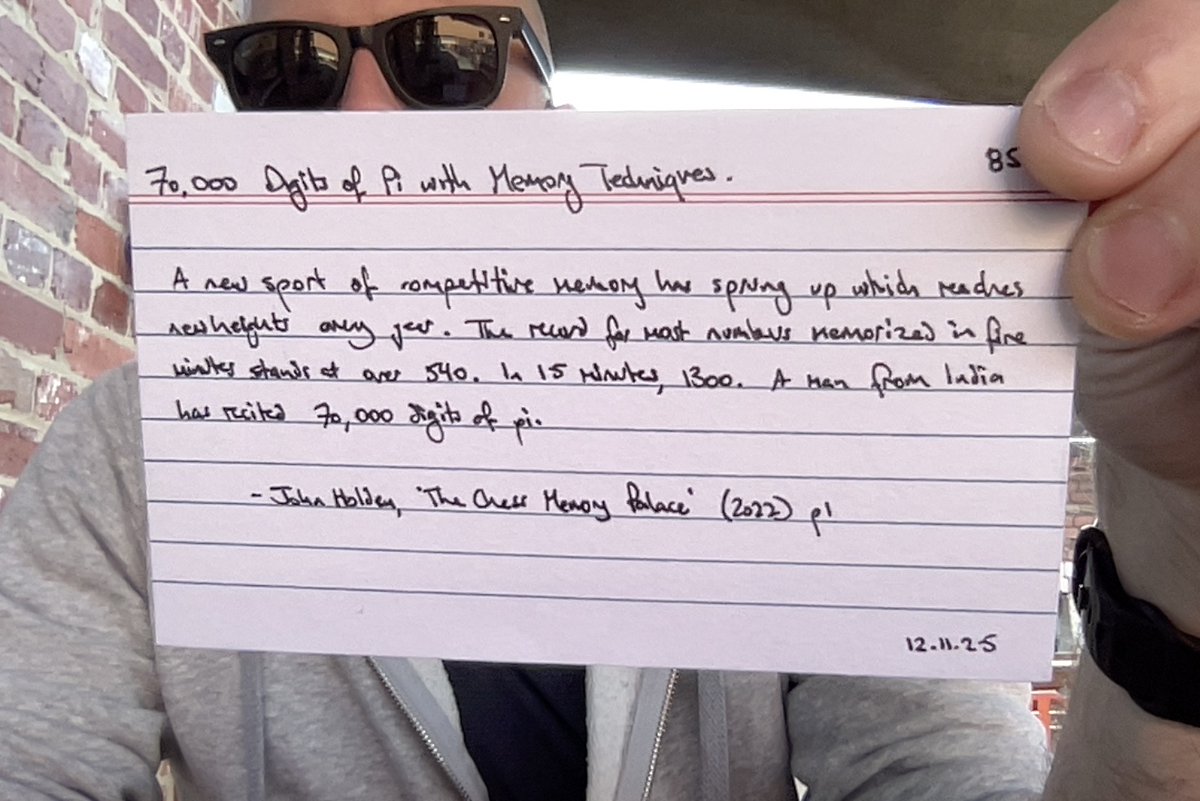 70,000 Digits of Pi with Memory Techniques.
85
A new sport of competitive memory has sprung up which reaches
new heights every year. The record for most numbers memorized in five
minutes stands at over 540. In 15 minutes, 1300. A man from India
has recited 70,000 digits of pi.
- John Holden, 'The Chess Memory Palace' (2022) p1
12.11.25